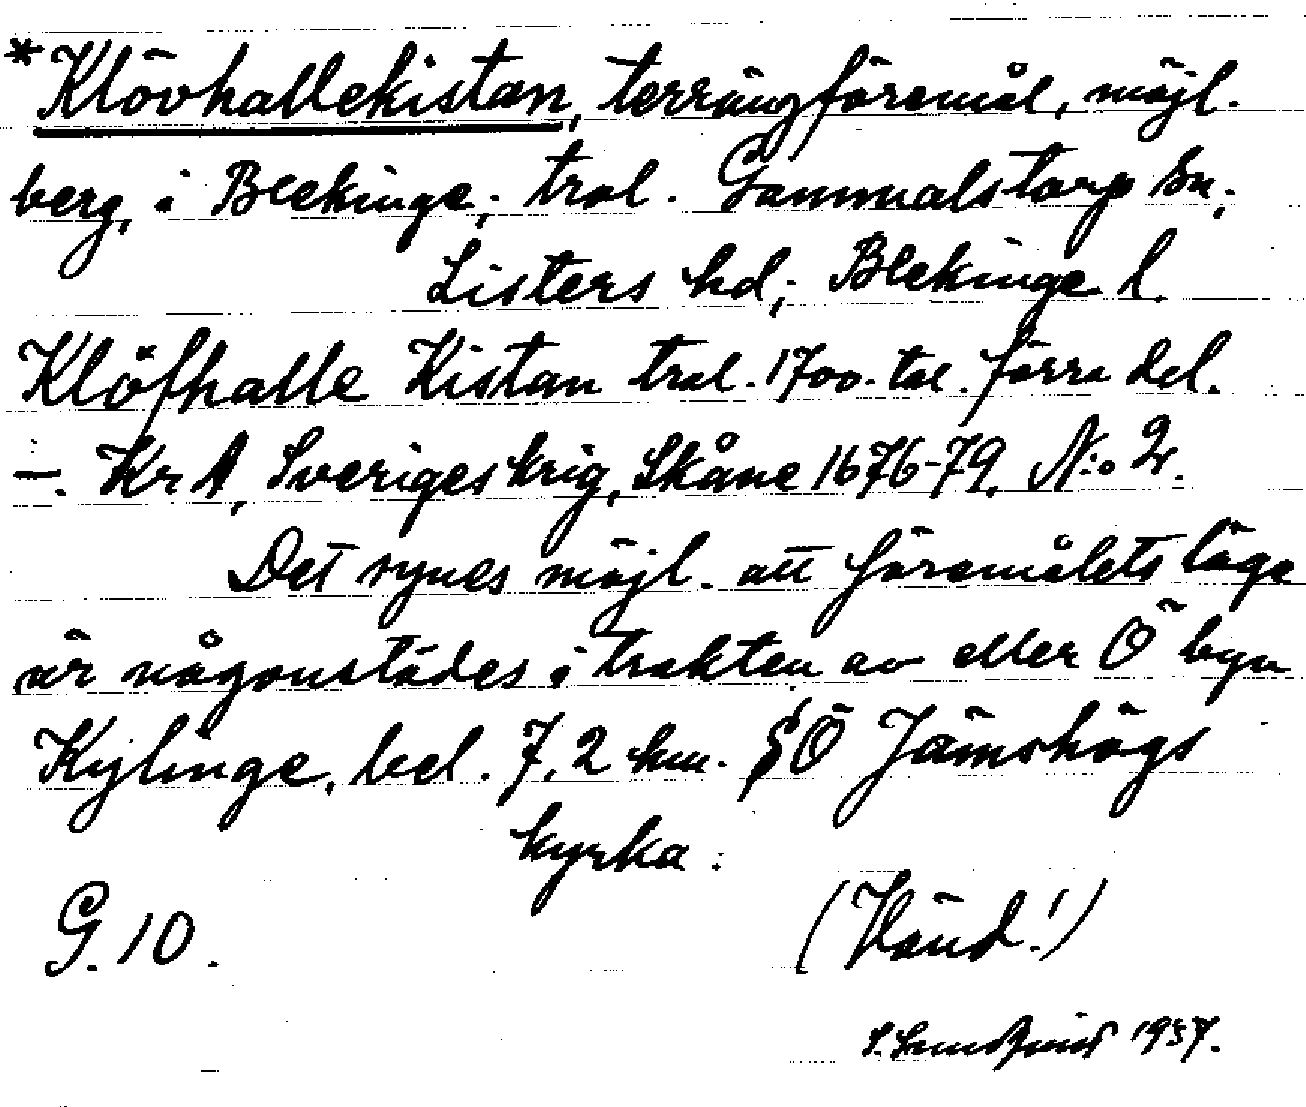 *Klövhallekistan, terrängföremål, möjl.
berg, i Blekinge; trol. Gammalstorp sn;
Listers hd; Blekinge l.
Klöfhalle Kistan trol. 1700-tal. förra del.
–. KrA, Sveriges krig, Skåne 1676-79, N:o 2.
Det synes möjl. att föremålets läge
är någonstädes i trakten av eller Ö byn
Kylinge, bel. 7,2 km. SÖ Jämshögs
kyrka.
G. 10.
(Vänd!)
1957.